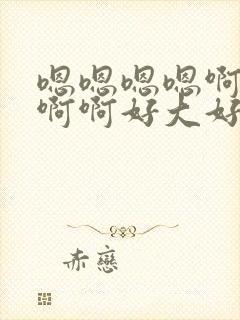 嗯嗯嗯嗯啊
啊啊好大好
赤戀